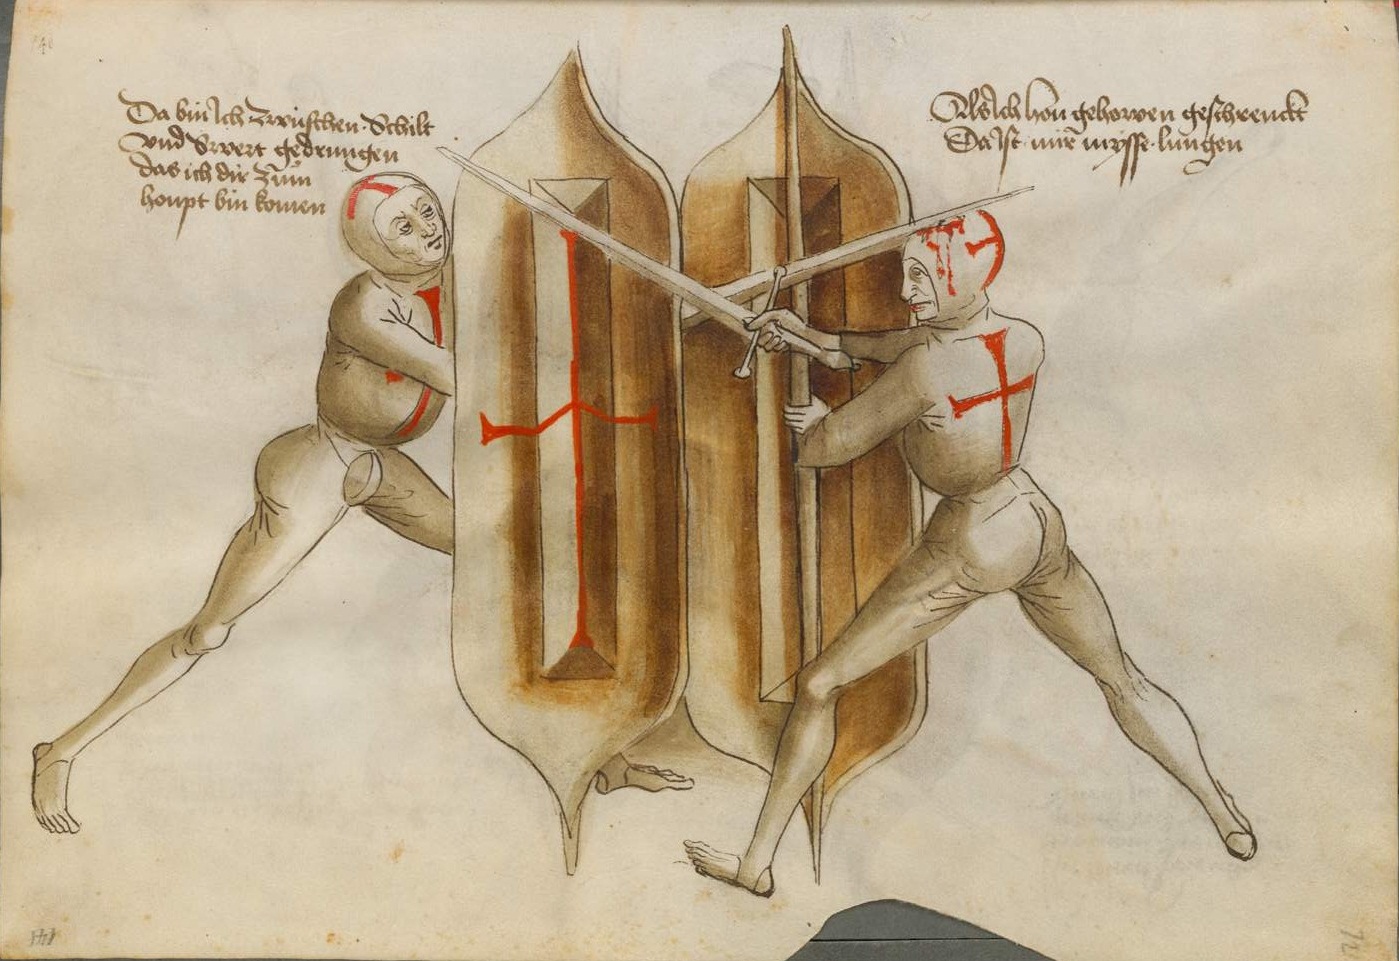 Da bin Ich zwüschen Schilt
vnd Swert gedrungen
das ich dir zům
houpt bin komen
Als Ich hon gehowen geschrenckt
Da Ist mir mysse lungen